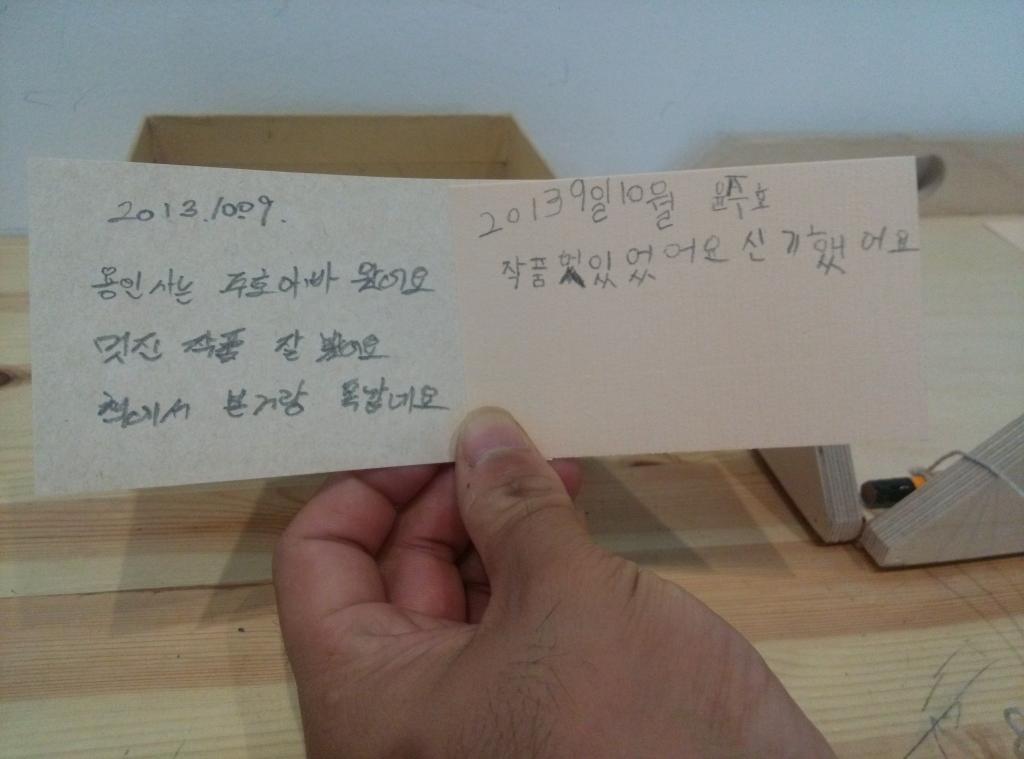 2013.1009.
용인 사는 주호아빠 왔어요
멋진 작품 잘 봤어요
책에서 본거랑 똑같네요
2013 9일10월 윤주호
작품 멋있 었 어요 신 기 했 어요